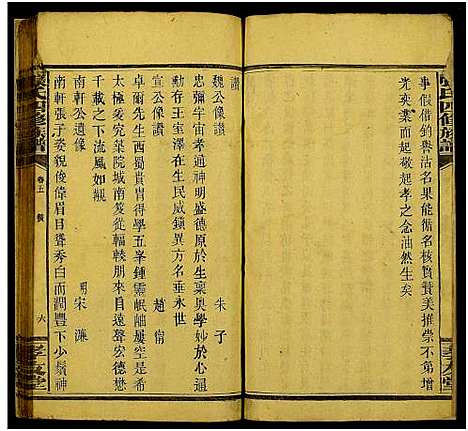 事假借鈞譽沽名果能循名核實贊美推崇不第增
光奕葉而已敬起孝之念油然生矣
讚
魏公像讚 朱子
忠彌宇宙孝通神明盛德原於生稟奧學妙於心通
勳存王室澤在生民威鎮異方名垂永世
宣公像讚 趙
卓爾先生西蜀貴胄得學五峯鍾靈岷岫屢空是希
太極爰究葉院城南笈從輻輳朋來自遠聲宏德懋
千載之下流風如覿
南軒公遺像 明宋濂
南軒張子姿貌俊偉眉目聳秀白而潤豐下少鬚神
氏四修族譜
卷五
六
孝友堂